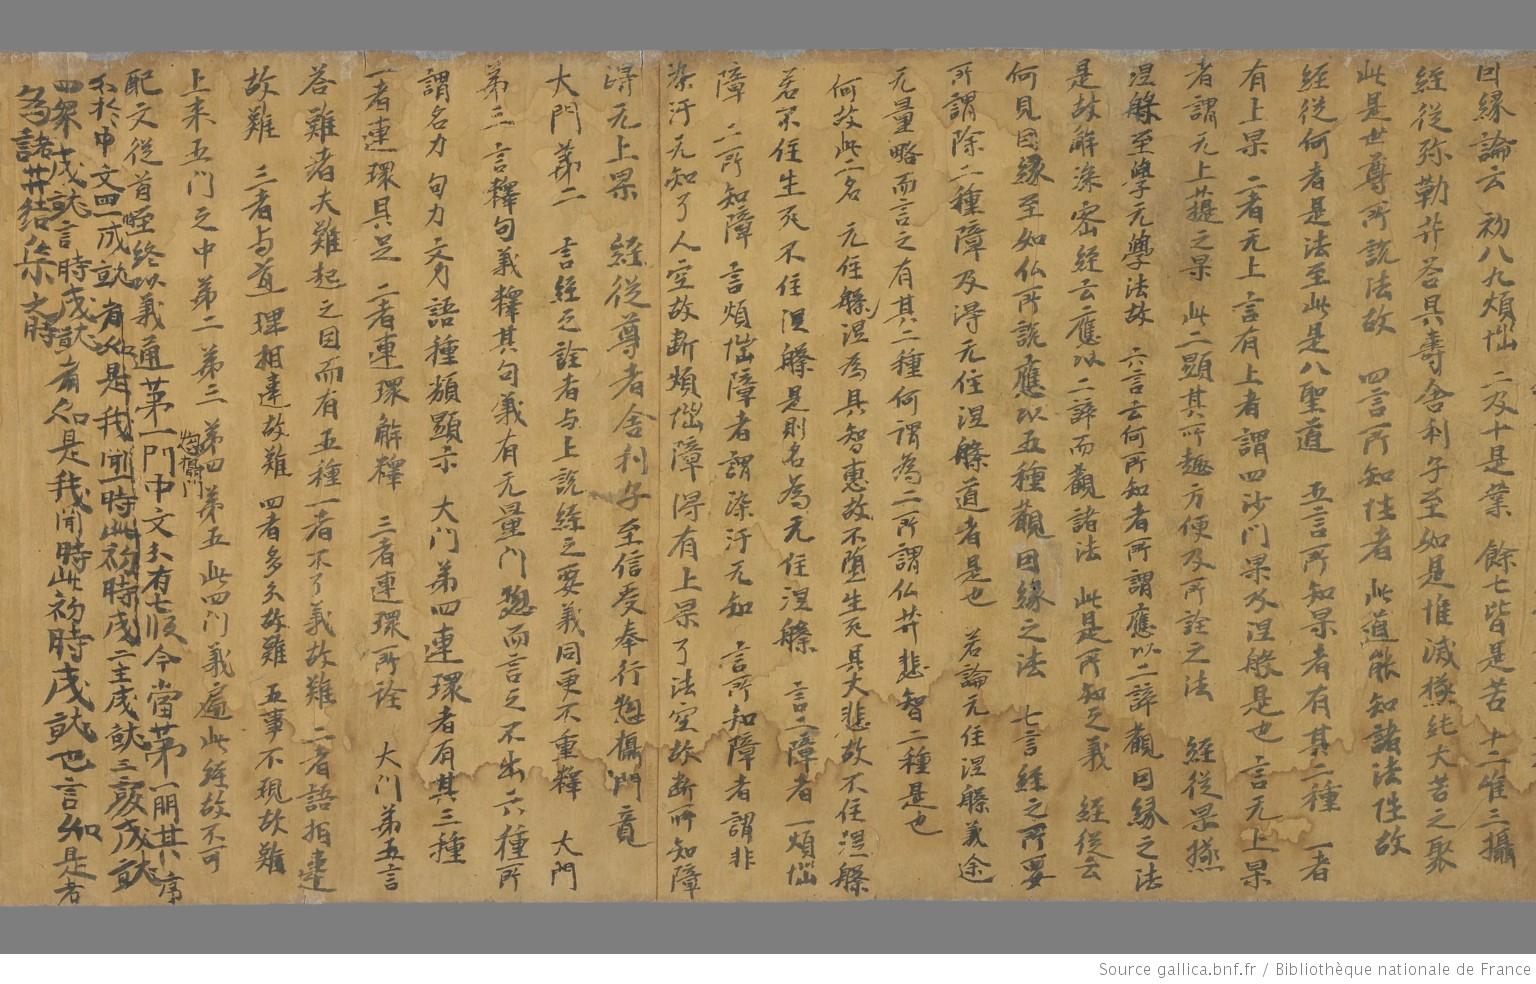 因緣論云 初八九煩惱 二及十是業 餘七皆是苦 十二唯三攝
經從弥勒井荅具壽舍利子至如是惟滅㨾純大苦之聚
此是世尊所説法故 四言所知性者 此道能知諸法性故
經從何者是法至此是八聖道 五言所知果者有其二種 一者
有上果 二者无上 言有上者謂四沙門果及涅般是也 言无上果
者謂无上菩提之果 此二顯其所趣方便及所詮之法 經從果㨾
涅槃至學无學法故 六言云何所知者所謂應以二諦觀因緣之法
是故解深密經云應以二諦而觀諸法 此是所知之義 經從云
何見因緣至如仏所説應以五種觀因緣之法 七言經之所要
所謂除二種障及淂无住涅槃道者是也 若論无住涅槃義途
无量略而言之有其二種何謂為二所謂仏井悲智二種是也
何故此二名无住涅槃為具智惠故不墮生死具大悲故不住涅槃
若不住生死不住涅槃是則名為无住涅槃 言二障者一煩惱
障 二所知障 言煩惱障者謂染汙无知 言所知障者謂非
染汙无知了人空故断煩惱障淂有上果 了法空故断所知障
淂无上果 經從尊者舍利子至信受奉行惣攝門竟
大門第二 言經之詮者与上説經之要義同更不重釋 大門
第三 言釋句義釋其句義有无量門惣而言之不出六種所
謂名力句力文力語種類顯示 大門第四連環者有其三種
一者連環具足 二者連環解釋 三者連環所詮 大門第五言
荅難者夫難起之因而有五種一者不了義故難 二者語相違
故難 三者与道理相違故難 四者多义故難 五事不現故難
上来五門之中第二第三第四第五此四門義 此經故不可
惣攝門
配文從首至終以義通第一門中文义有七順今當第一明其序
不於中文四一成就 有如是我聞一時此初時成二主成就三
四衆成就言時成就者如是我聞時此初時成就也言如是者
為諸井結集之時